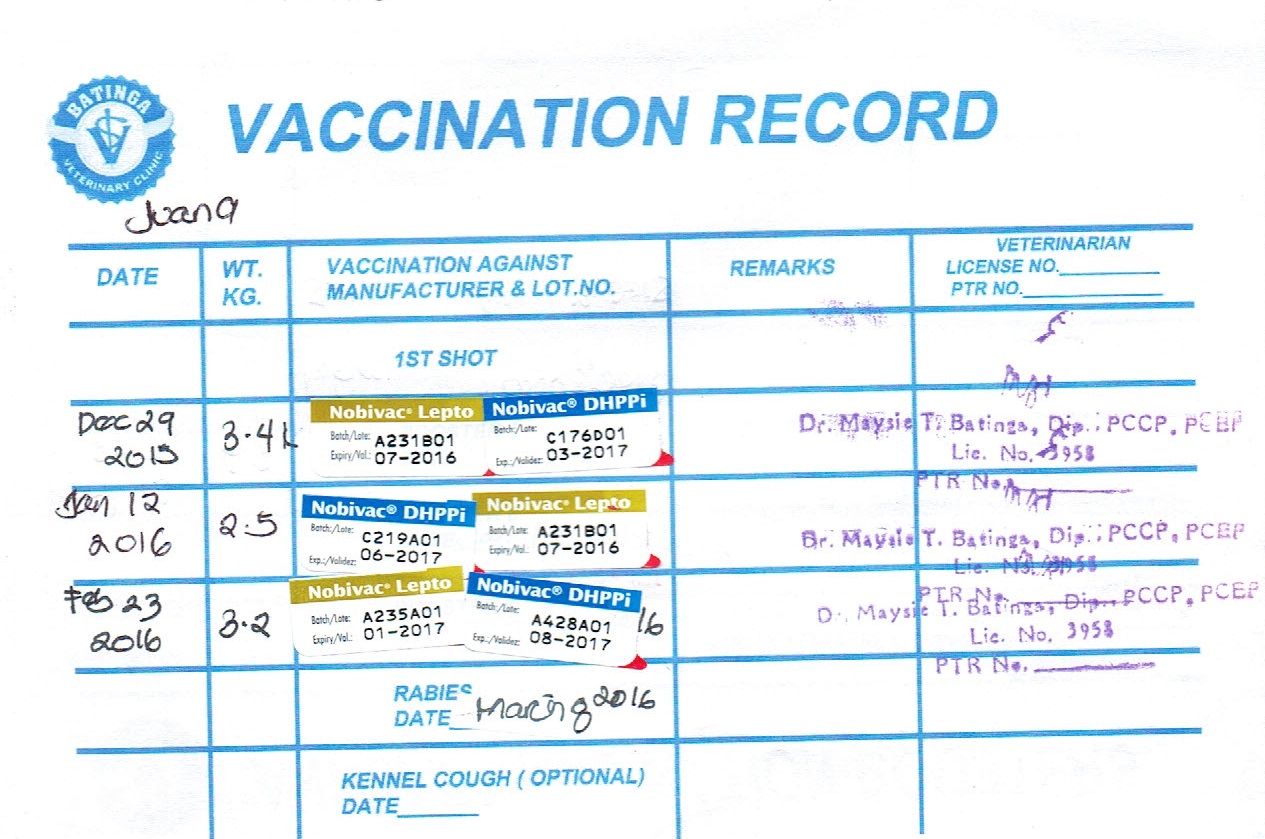 BATINGA
VETERINARY CLINIC
VACCINATION RECORD
Juana
DATE
WT.
KG.
VACCINATION AGAINST
MANUFACTURER & LOT.NO.
REMARKS
VETERINARIAN
LICENSE NO.__________
PTR NO.______________
1ST SHOT
Dec 29
2015
3.4
Nobivac® Lepto
Batch/Lote: A231B01
Expiry/Val.: 07-2016
Nobivac® DHPPi
Batch:/Lote: C176D01
Exp.:/Validez: 03-2017
Dr. Maysie T. Batinga, Dip.: PCCP, PCEP
Lic. No. 3958
PTR No.
Jan 12
2016
2.5
Nobivac® DHPPi
Batch:/Lote: C219A01
Exp.:/Validez: 06-2017
Nobivac® Lepto
Batch/Lote: A231B01
Expiry/Val.: 07-2016
Dr. Maysie T. Batinga, Dip.: PCCP, PCEP
Lic. No. 3958
PTR No.
Feb 23
2016
3.2
Nobivac® Lepto
Batch/Lote: A235A01
Expiry/Val.: 01-2017
Nobivac® DHPPi
Batch:/Lote: A428A01
Exp.:/Validez: 08-2017
16
Dr. Maysie T. Batinga, Dip., PCCP, PCEP
Lic. No. 3958
PTR No.
RABIES
DATE March 8 2016
KENNEL COUGH ( OPTIONAL)
DATE_______